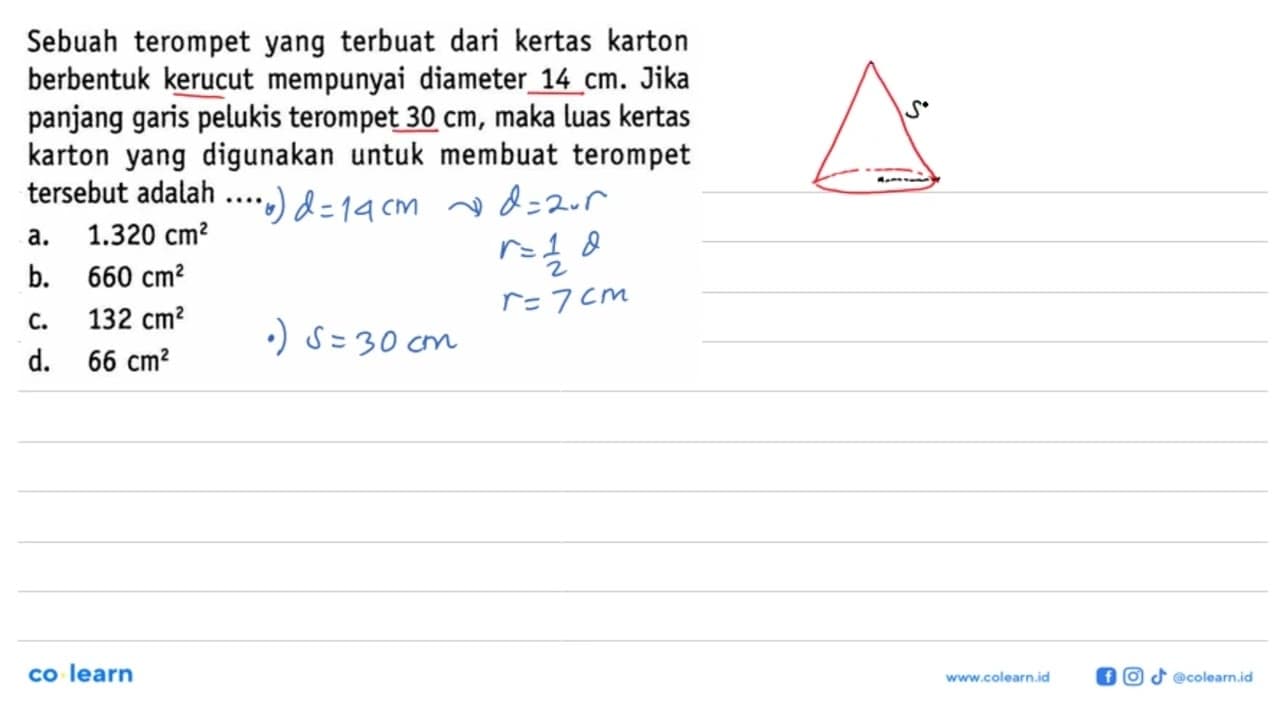 Sebuah terompet yang terbuat dari kertas karton
berbentuk kerucut mempunyai diameter 14 cm. Jika
panjang garis pelukis terompet 30 cm, maka luas kertas
karton yang digunakan untuk membuat terompet
tersebut adalah ....
a. 1.320 cm²
b. 660 cm²
c. 132 cm²
d. 66 cm²
•) d = 14 cm → d = 2.r
r = 1/2 d
r = 7 cm
•) s = 30 cm
s
co learn
www.colearn.id
@colearn.id